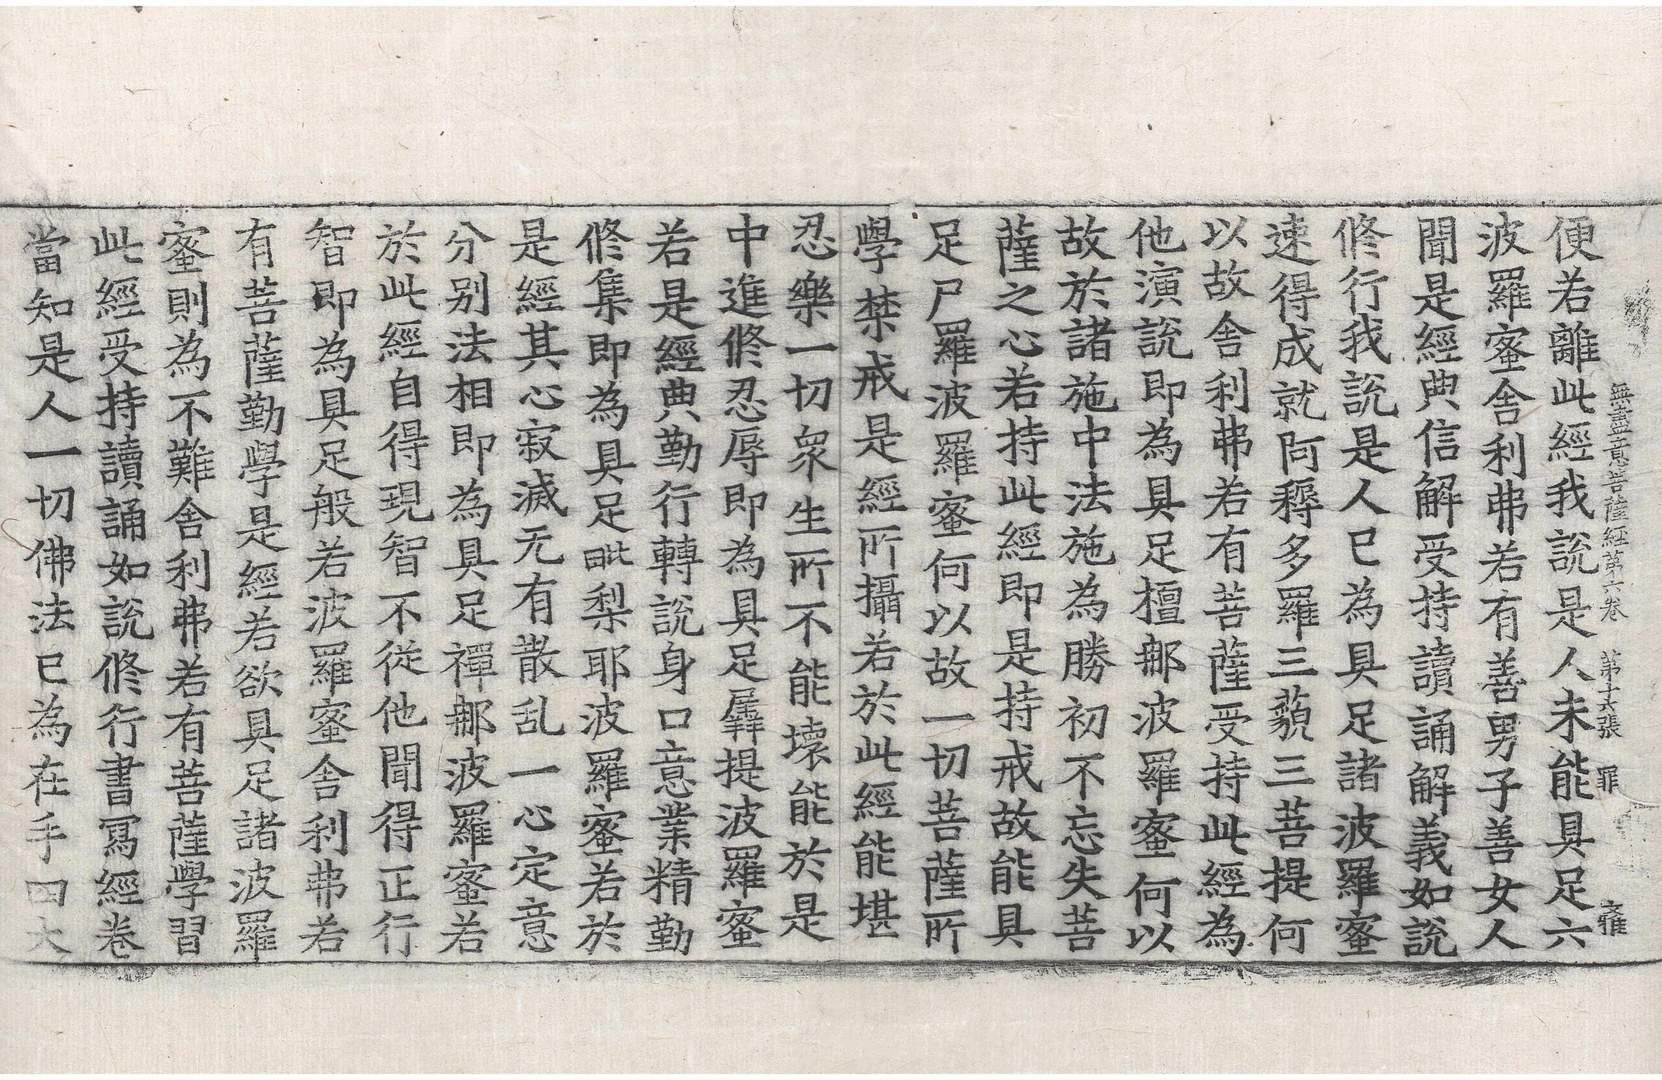 無盡意菩薩經第六卷 第十六張 罪
便若離此經我說是人未能具足六
波羅蜜舍利弗若有善男子善女人
聞是經典信解受持讀誦解義如說
修行我說是人已為具足諸波羅蜜
速得成就阿耨多羅三藐三菩提何
以故舍利弗若有菩薩受持此經為
他演說即為具足檀那波羅蜜何以
故於諸施中法施為勝初不忘失菩
薩之心若持此經即是持戒故能具
足尸羅波羅蜜何以故一切菩薩所
學禁戒是經所攝若於此經能堪
忍樂一切眾生所不能壞能於是
中進修忍辱即為具足羼提波羅蜜
若是經典勤行轉說身口意業精勤
修集即為具足毗梨耶波羅蜜若於
是經其心寂滅无有散乱一心定意
分别法相即為具足禪那波羅蜜若
於此經自得現智不從他聞得正行
智即為具足般若波羅蜜舍利弗若
有菩薩勤學是經若欲具足諸波羅
蜜則為不難舍利弗若有菩薩學習
此經受持讀誦如說修行書寫經卷
當知是人一切佛法已為在手四大